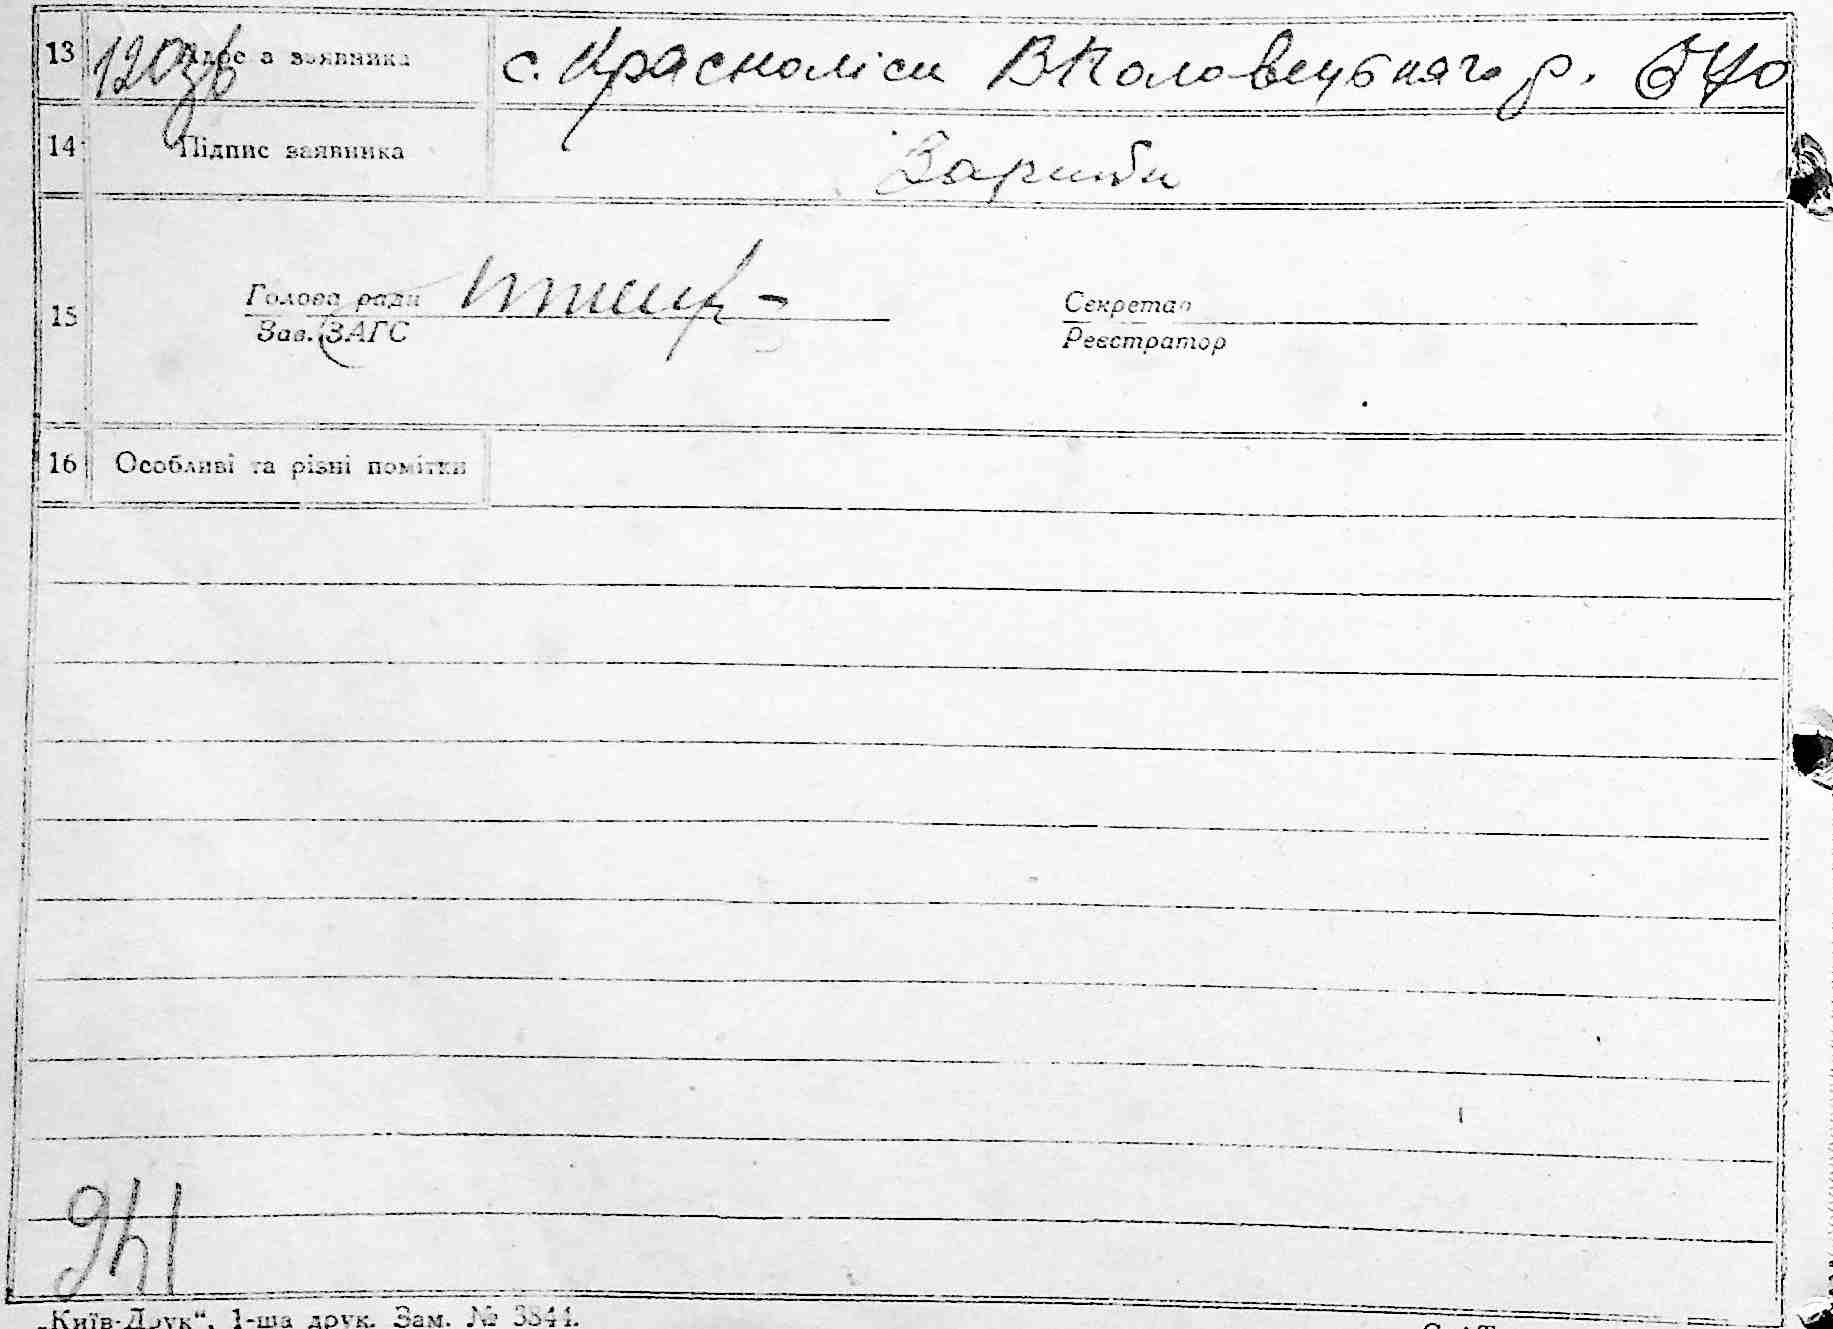 13 Адреса заявника с. Красноліси ВПоловецького р.
14 Підпис заявника
15 Голова ради Секретар
Зав. ЗАГС Реєстратор
16 Особливі та різні помітки
941
„Київ-Друк“, 1-ша друк. Зам. № 3844.